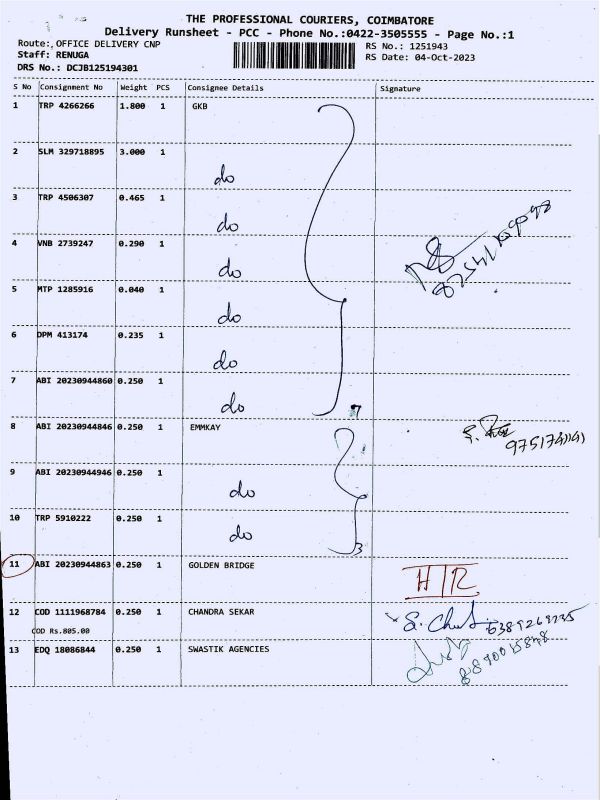 THE PROFESSIONAL COURIERS, COIMBATORE
Delivery Runsheet - PCC - Phone No.:0422-3505555 - Page No.:1
Route:, OFFICE DELIVERY CNP
RS No.: 1251943
Staff: RENUGA
RS Date: 04-Oct-2023
DRS No.: DCJB125194301
S No Consignment No Weight PCS Consignee Details Signature
1 TRP 4266266 1.800 1 GKB
2 SLM 329718895 3.000 1
do
3 TRP 4506307 0.465 1
do
4 VNB 2739247 0.290 1
do
5 MTP 1285916 0.040 1
do
6 DPM 413174 0.235 1
do
7 ABI 20230944860 0.250 1
do 7
8 ABI 20230944846 0.250 1 EMMKAY
9 ABI 20230944946 0.250 1
do
10 TRP 5910222 0.250 1
do 3
11 ABI 20230944863 0.250 1 GOLDEN BRIDGE
H/R
12 COD 1111968784 0.250 1 CHANDRA SEKAR
COD Rs.805.00
13 EDQ 18086844 0.250 1 SWASTIK AGENCIES